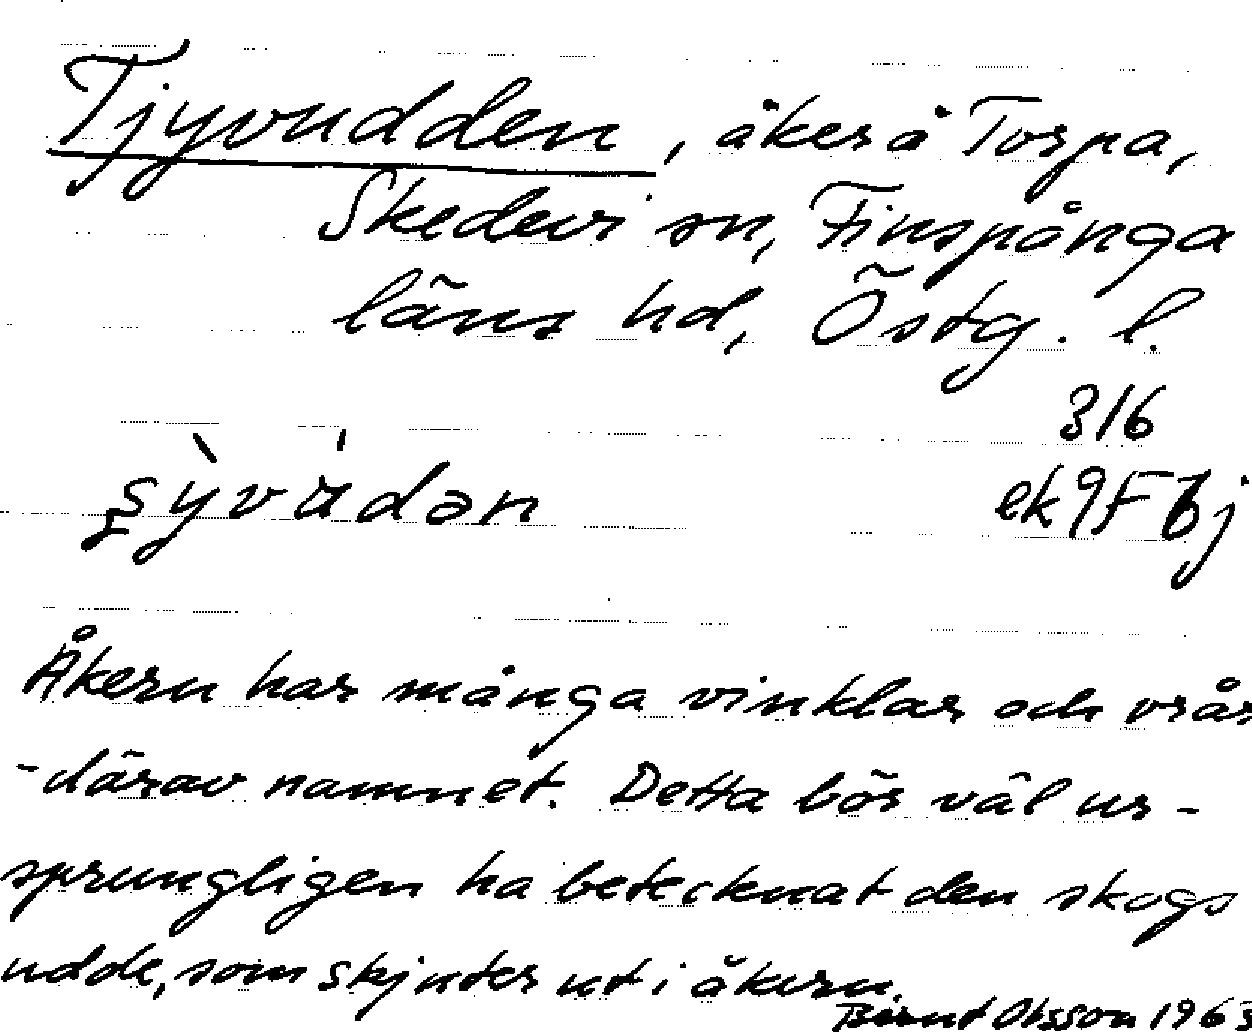 Tjyvudden, åker å Torpa,
Skedevi sn, Finspånga
läns hd, Östg. l.
316
ş̀yvùdən ek 9F 6j
Åkern har många vinklar och vrår
-därav namnet. Detta bör väl ur-
sprungligen ha betecknat den skogs
udde, som skjuter ut i åkern.
Bernt Olsson 1963